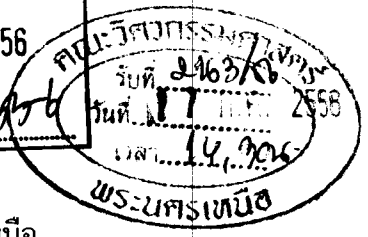 56
คณะวิศวกรรมศาสตร์
รับที่ 2163/
วันที่ 17 2556
เวลา 14,30น
พระนครเหนือ
นือ